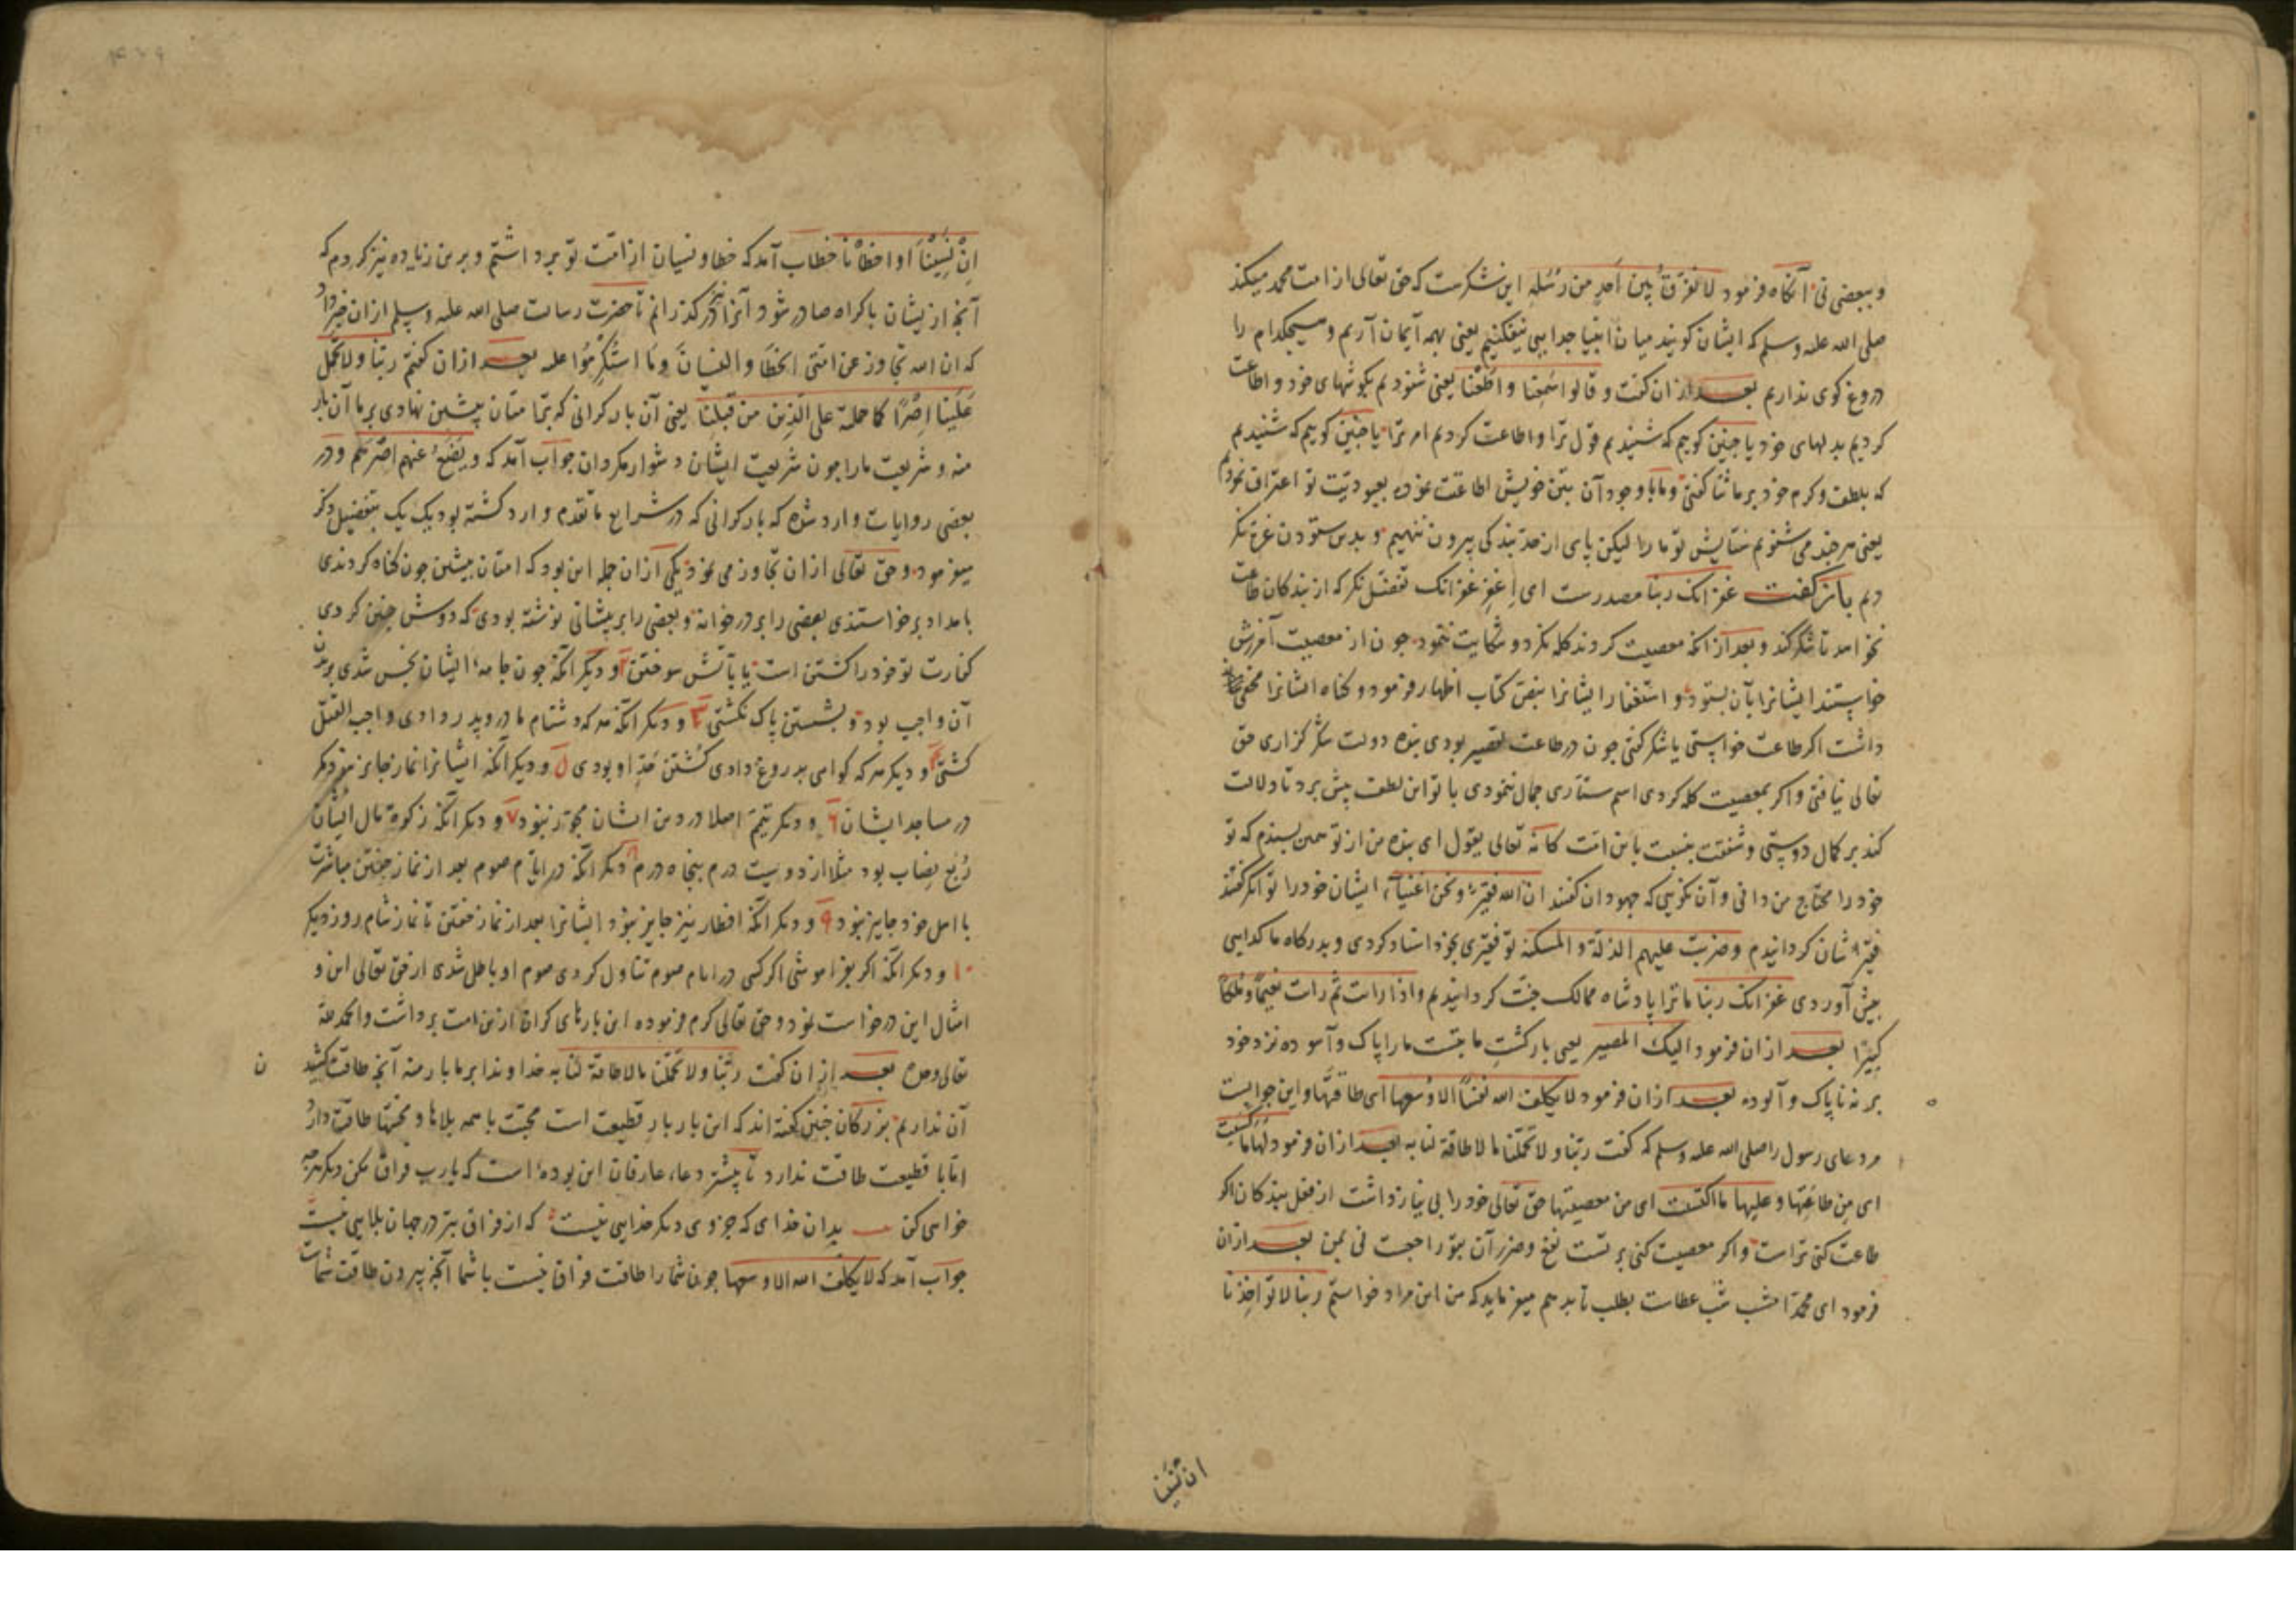 وببعضی نی آنگاه فرمود لا نفرق بین احد من رسله این شکرست که حق تعالی از امت محمد میکند
صلی الله علیه وسلم که ایشان گویند میان انبیا جدایی نیفکنیم یعنی بهمه ایمان آریم و هیچکدام را
دروغ گوی نداریم بعد از ان گفت و قالوا سمعنا و اطعنا یعنی شنودیم بگوشهای خود و اطاعت
کردیم بدلهای خود یا چنین گوییم که شنیدیم قول ترا و اطاعت کردیم امر ترا یا چنین گوییم که شنیدیم
که بلطف و کرم خود بر ما ثنا گفتی و ما با وجود آن بتن خویش اطاعت نموده بعبودیت تو اعتراف نمودیم
یعنی هر چند می شنویم ستایش تو ما را لیکن پای از حد بندگی بیرون ننهیم و بدین ستودن غره نگر
دیم باز گفت غفرانک ربنا مصدرست ای اغفر غفرانک تفضل نگر که از بندگان طاعت
نخواهد تا شکر کند و بعد از انکه معصیت کردند گله نکرد و شکایت ننمود چون از معصیت آمرزش
خواستند ایشانرا بآن بستود و استغفار ایشانرا بنص کتاب اظهار فرمود و گناه ایشانرا مخفی
داشت اگر طاعت خواستی یا شکر گفتی چون در طاعت تقصیر بودی بنده دولت شکر گزاری حق
تعالی نیافتی و اگر بمعصیت گله کردی اسم ستاری جمال ننمودی با تو این لطف پیش برد تا دلالت
کند بر کمال دوستی و شفقت بنسبت با این امت کانه تعالی یقول ای بنده من از تو همین بسندم که تو
خود را محتاج من دانی و آن نگویی که جهودان گفتند ان الله فقیر و نحن اغنیاء ایشان خود را توانگر گفتند
فقیر شان گردانیدم و ضربت علیهم الذلة و المسکنة تو فقیری بخود اسناد کردی و بدرگاه ما گدایی
پیش آوردی غفرانک ربنا ما ترا پادشاه ممالک جنت گردانیدیم و اذا رایت ثم رایت نعیما و ملکا
کبیرا بعد از ان فرمود الیک المصیر یعنی بازگشت ما بتست ما را پاک و آسوده نزد خود
بر نه ناپاک و آلوده بعد از ان فرمود لا یکلف الله نفسا الا وسعها ای طاقتها و این جوابیست
مر دعای رسول را صلی الله علیه وسلم که گفت ربنا و لا تحملنا ما لا طاقة لنا به بعد از ان فرمود لها ما کسبت
ای من طاعتها و علیها ما اکتسبت ای من معصیتها حق تعالی خود را بی نیاز داشت از فعل بندگان اگر
طاعت کنی تراست و اگر معصیت کنی بر تست نفع و ضرر آن بتو راجعست نی بمن بعد از ان
فرمود ای محمد امشب شب عطاست بطلب تا بدهم میفرماید که من این مراد خواستم ربنا لا تؤاخذنا
ان نسینا
ان نسینا او اخطأنا خطاب آمد که خطا و نسیان از امت تو برداشتم و برین زیاده نیز کردم که
آنچ از یشان باکراه صادر شود آنرا نیز در گذرانم تا حضرت رسالت صلی الله علیه وسلم ازان خبر داد
که ان الله تجاوز عن امتی الخطأ و النسیان و ما استکرهوا علیه بعد ازان گفتم ربنا ولا تحمل
علینا اصرا کما حملته علی الذین من قبلنا یعنی آن بار گرانی که بر امتان پیشین نهادی بر ما آن بار
منه و شریعت ما را چون شریعت ایشان دشوار مگردان جواب آمد که و یضع عنهم اصرهم و در
بعضی روایات وارد شده که بار گرانی که در شرایع ما تقدم وارد گشته بود یک یک بتفضیل ذکر
میفرمود و حق تعالی ازان تجاوز می نمود یکی ازان جمله این بود که امتان پیشین چون گناه کردندی
بامداد برخاستندی بعضی را بر در خانه و بعضی را بر پیشانی نوشته بودی که دوش چنین کردی
کفارت تو خود را کشتن است یا بآتش سوختن ۲ و دیگر آنکه چون جامه ایشان نجس شدی بریدن
آن واجب بود و بشستن پاک نگشتی ۳ و دیگر آنکه هر که دشنام مادر و پدر دادی واجب القتل
گشتی ۴ و دیگر هر که گواهی بدروغ دادی کشتن حد او بودی ۵ و دیگر آنکه ایشانرا نماز جایز نبود مگر
در مساجد ایشان ۶ و دیگر تیمم اصلا در دین ایشان مجوز نبود ۷ و دیگر آنکه زکوة مال ایشان
ربع نصاب بود مثلا از دویست درم پنجاه درم ۸ دیگر آنکه در ایام صوم بعد از نماز خفتن مباشرت
با اهل خود جایز نبود ۹ و دیگر آنکه افطار نیز جایز نبود ایشانرا بعد از نماز خفتن تا نماز شام روز دیگر
۱۰ و دیگر آنکه اگر بفراموشی اگر کسی در ایام صوم تناول کردی صوم او باطل شدی از حق تعالی این و
امثال این درخواست نمود و حق تعالی کرم فرموده این بارهای گران ازین امت برداشت و الحمد لله
تعالی وحده بعد ازان گفت ربنا ولا تحملنا ما لا طاقة لنا به خداوندا بر ما بار منه آنچ طاقت کشید
ن
آن نداریم بزرگان چنین گفته اند که این بار بار قطیعت است محبت با همه بلاها و محنتها طاقت دارد
اما با قطیعت طاقت ندارد تا بیشتر دعاء عارفان این بوده است که یارب فراق مکن دیگر هرچه
خواهی کن بدان خدای که جز وی دیگر خدایی نیست که از فراق بتر در جهان بلایی نیست
جواب آمد که لا یکلف الله الا وسعها چون شما را طاقت فراق نیست با شما آنچ بیرون طاقت شماست